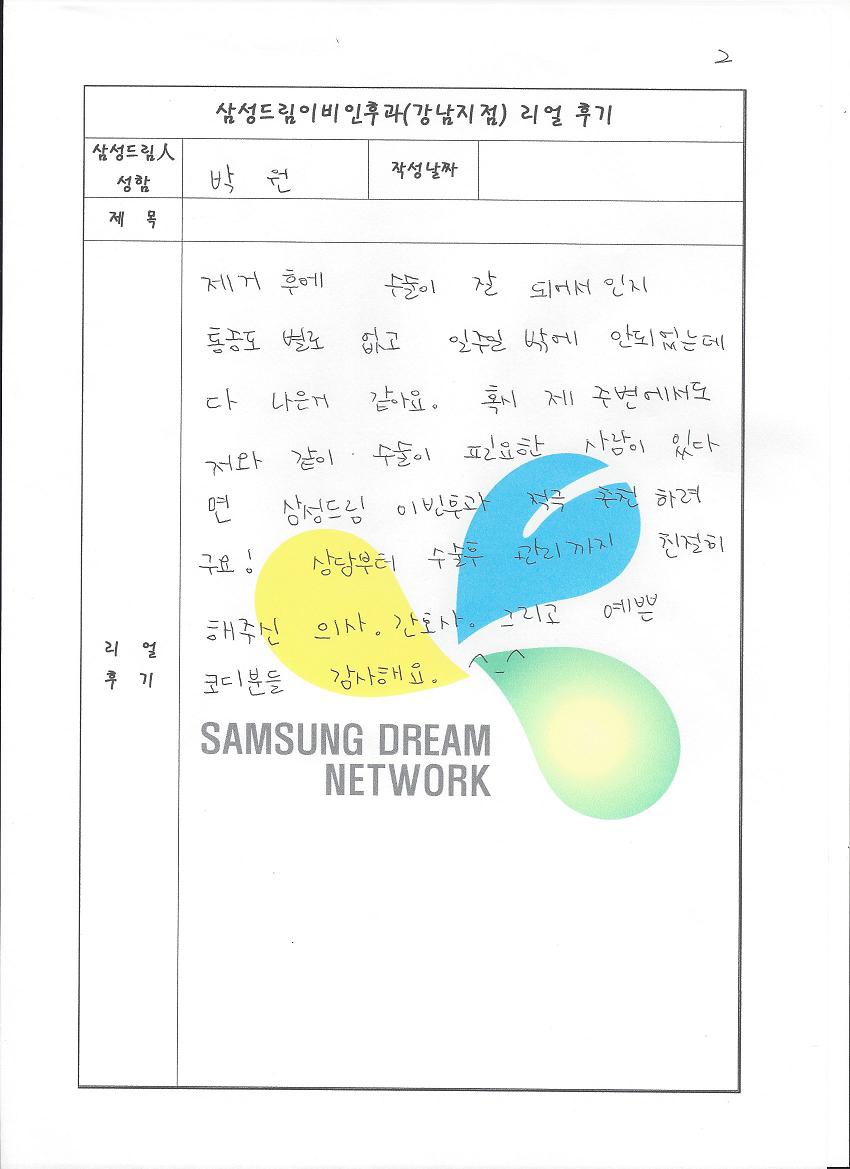 2
삼성드림이비인후과(강남지점) 리얼 후기
삼성드림人
성함
박 원
작성날짜
제 목
제거 후에 수술이 잘 되어서 인지
통증도 별로 없고 일주일 밖에 안되었는데
다 나은거 같아요. 혹시 제 주변에서도
저와 같이 수술이 필요한 사람이 있다
면 삼성드림 이빈후과 적극 추천 하려
구요! 상담부터 수술후 관리까지 친절히
해주신 의사. 간호사. 그리고 예쁜
코디분들 감사해요. ^_^
리 얼
후 기
SAMSUNG DREAM
NETWORK